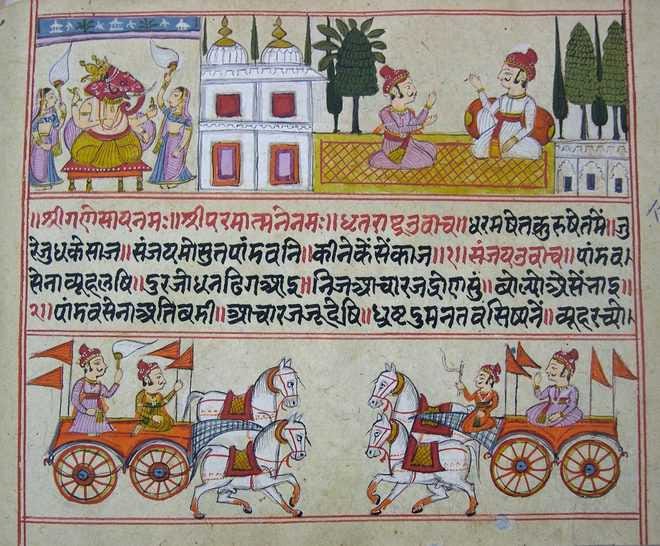 ॥श्रीगणेसायनमः॥श्रीपरमात्मनेनमः॥धृतराष्ट्रउवाच॥धरमषेतकुरुषेतमें॥जु
रेजुधकेसाज॥संजयमोसुतपांडवनि॥कीनेकेंसेंकाज॥१॥संजयउवाच॥पांडव
सेनाब्यूहलषि॥दुरजोधनढिगआइ॥निजआचारजद्रोणसुं॥बोल्योअैसेंनाइ॥
२॥पांडवसेनाअतिबडी॥आचारजजूदेषि॥धृष्टदुमनतवसिष्यनें॥ब्यूहरच्यो